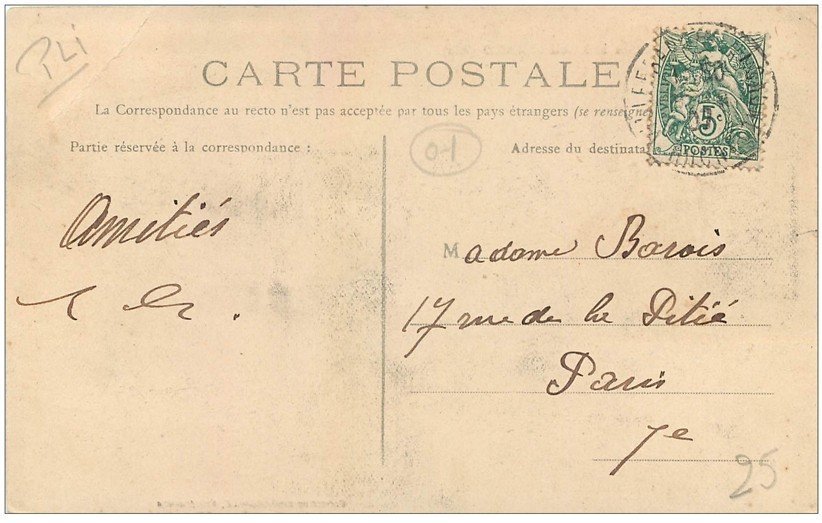 PLi
CARTE POSTALE
La Correspondance au recto n'est pas acceptée par tous les pays étrangers (se renseigne
Partie réservée à la correspondance :
01
Adresse du destinata
5c
POSTES
Amitiés
Madame Barois
17 rue de la Pitié
Paris
7e
25